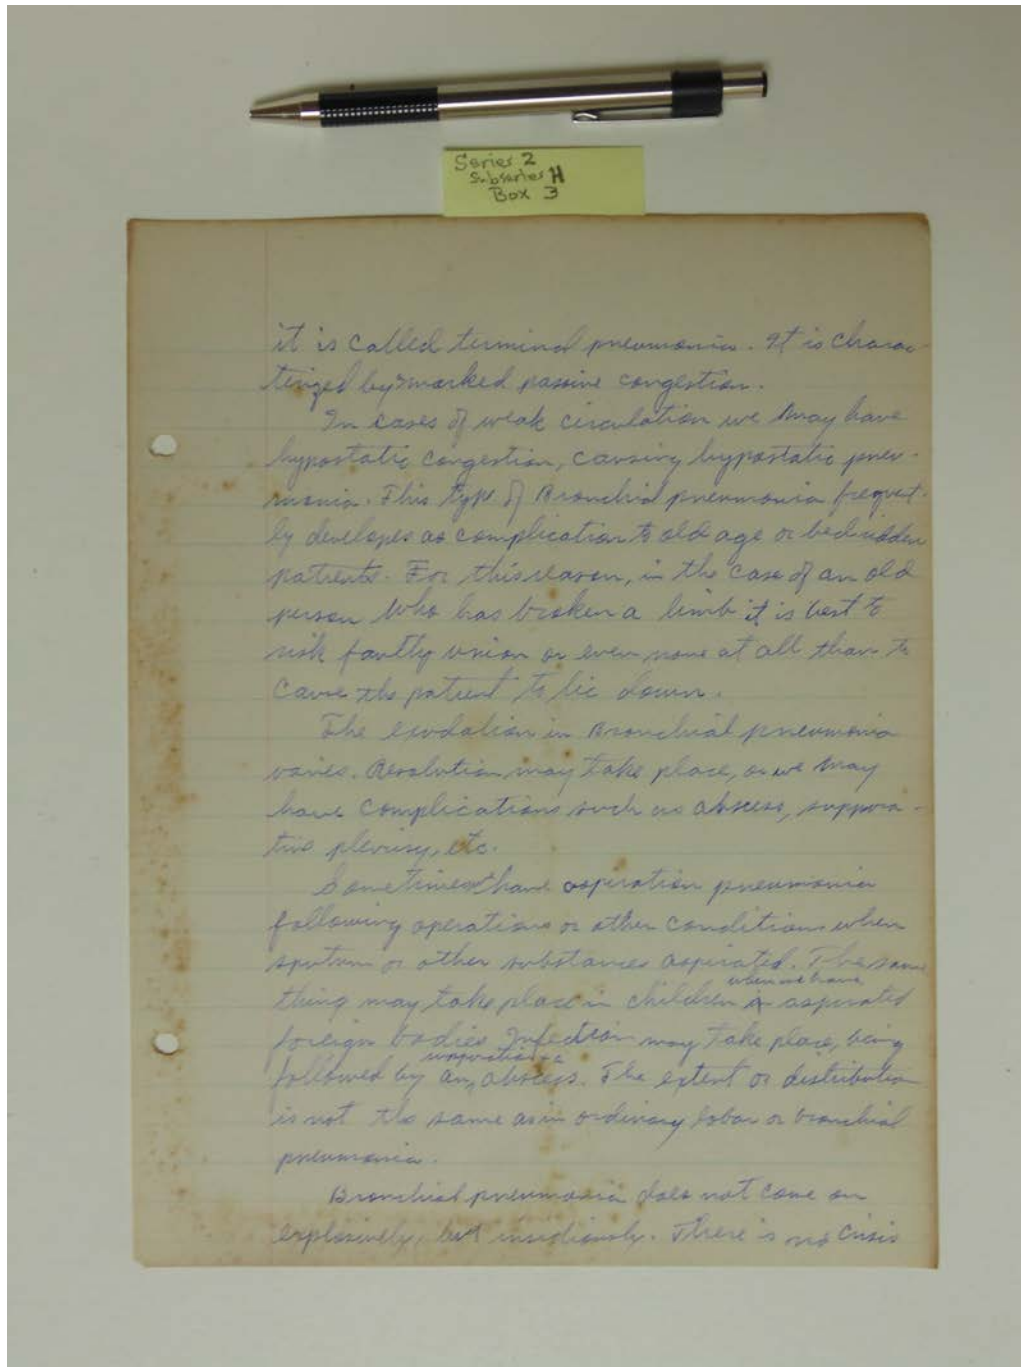 Series 2
Subseries H
Box 3
it is called terminal pneumonia. It is charac-
terized by marked passive congestion.
In cases of weak circulation we may have
hypostatic congestion, causing hypostatic pneu-
monia. This type of Bronchial pneumonia frequent-
ly developes as complication to old age or bedridden
patients. For this reason, in the case of an old
person who has broken a limb it is best to
risk faulty union or even none at all than to
cause the patient to lie down.
The exudation in Bronchial pneumonia
varies. Resolution may take place, or we may
have complications such as abscess, suppura-
tive pleurisy, etc.
Sometimes have aspiration pneumonia
following operations or other conditions when
sputum or other substances aspirated. The same
when we have
thing may take place in children aspirated
foreign bodies. Infection may take place, being
followed by an abscess. The extent or distribution
is not the same as in ordinary lobar or bronchial
pneumonia.
Bronchial pneumonia does not come on
explosively, but insidiously. There is no crisis